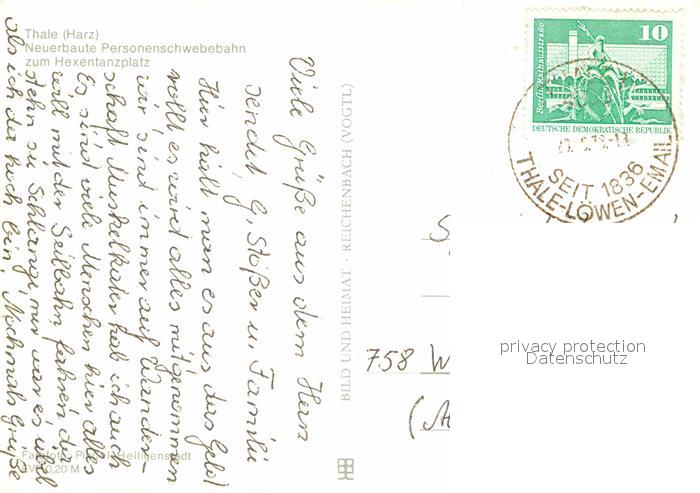 Thale (Harz)
Neuerbaute Personenschwebebahn
zum Hexentanzplatz
Viele Grüße aus dem Harz
sendet G. Stößer u. Familie
Hier hält man es aus das Geld
rollt es wird alles mitgenommen
wir sind immer auf Wander-
schaft, Muskelkater hab ich auch
Es sind viele Menschen hier alles
will mit der Seilbahn fahren da
stehn sie Schlange, mir war es übel
als ich da hoch bin! Nochmals Grüße
BILD UND HEIMAT · REICHENBACH (VOGTL)
Heiligenstadt
EVP 0,20 M
10
Berlin, Rathausstraße
DEUTSCHE DEMOKRATISCHE REPUBLIK
SEIT 1836
THALE-LÖWEN-EMAIL
758 W
privacy protection
Datenschutz